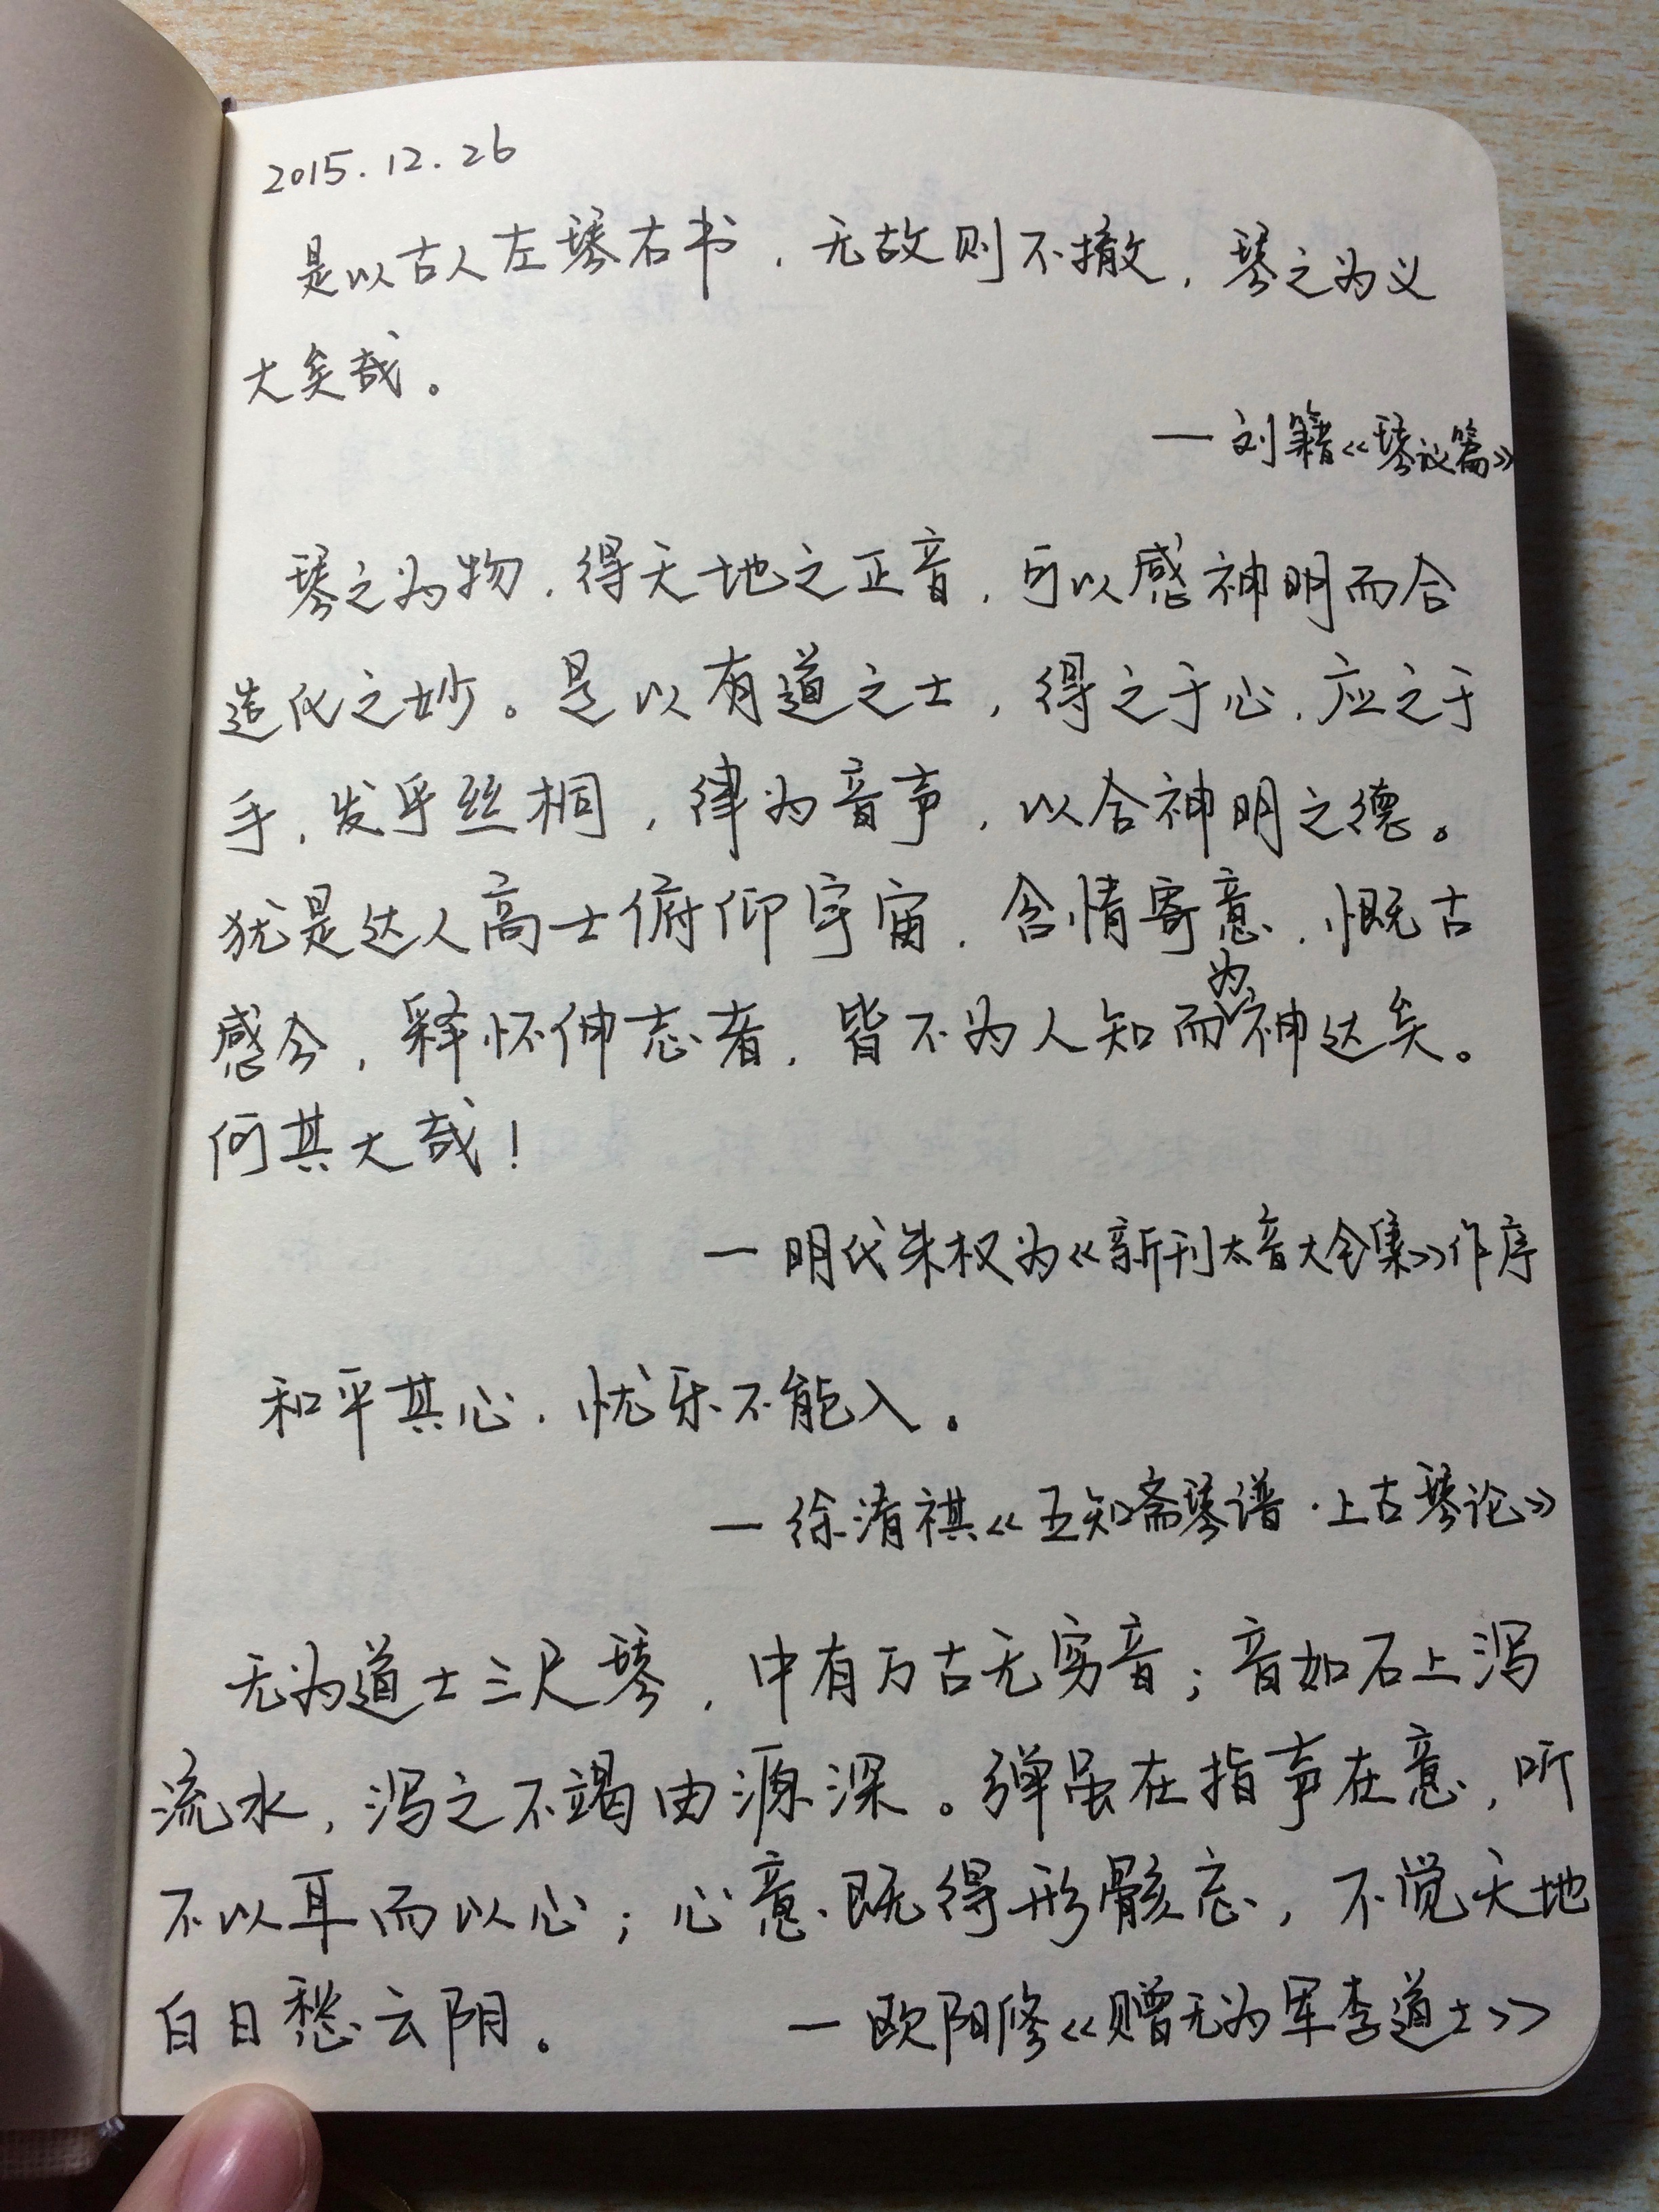 2015.12.26
是以古人左琴右书，无故则不撤，琴之为义
大矣哉。
— 刘籍《琴议篇》
琴之为物，得天地之正音，可以感神明而合
造化之妙。是以有道之士，得之于心，应之于
手，发乎丝桐，律为音声，以合神明之德。
犹是达人高士俯仰宇宙，含情寄意，慨古
感今，释怀伸志者，皆不为人知而为神达矣。
何其大哉！
— 明代朱权为《新刊太音大全集》作序
和平其心，忧乐不能入。
— 徐淯祺《五知斋琴谱·上古琴论》
无为道士三尺琴，中有万古无穷音；音如石上泻
流水，泻之不竭由源深。弹虽在指声在意，听
不以耳而以心；心意既得形骸忘，不觉天地
白日愁云阴。 — 欧阳修《赠无为军李道士》